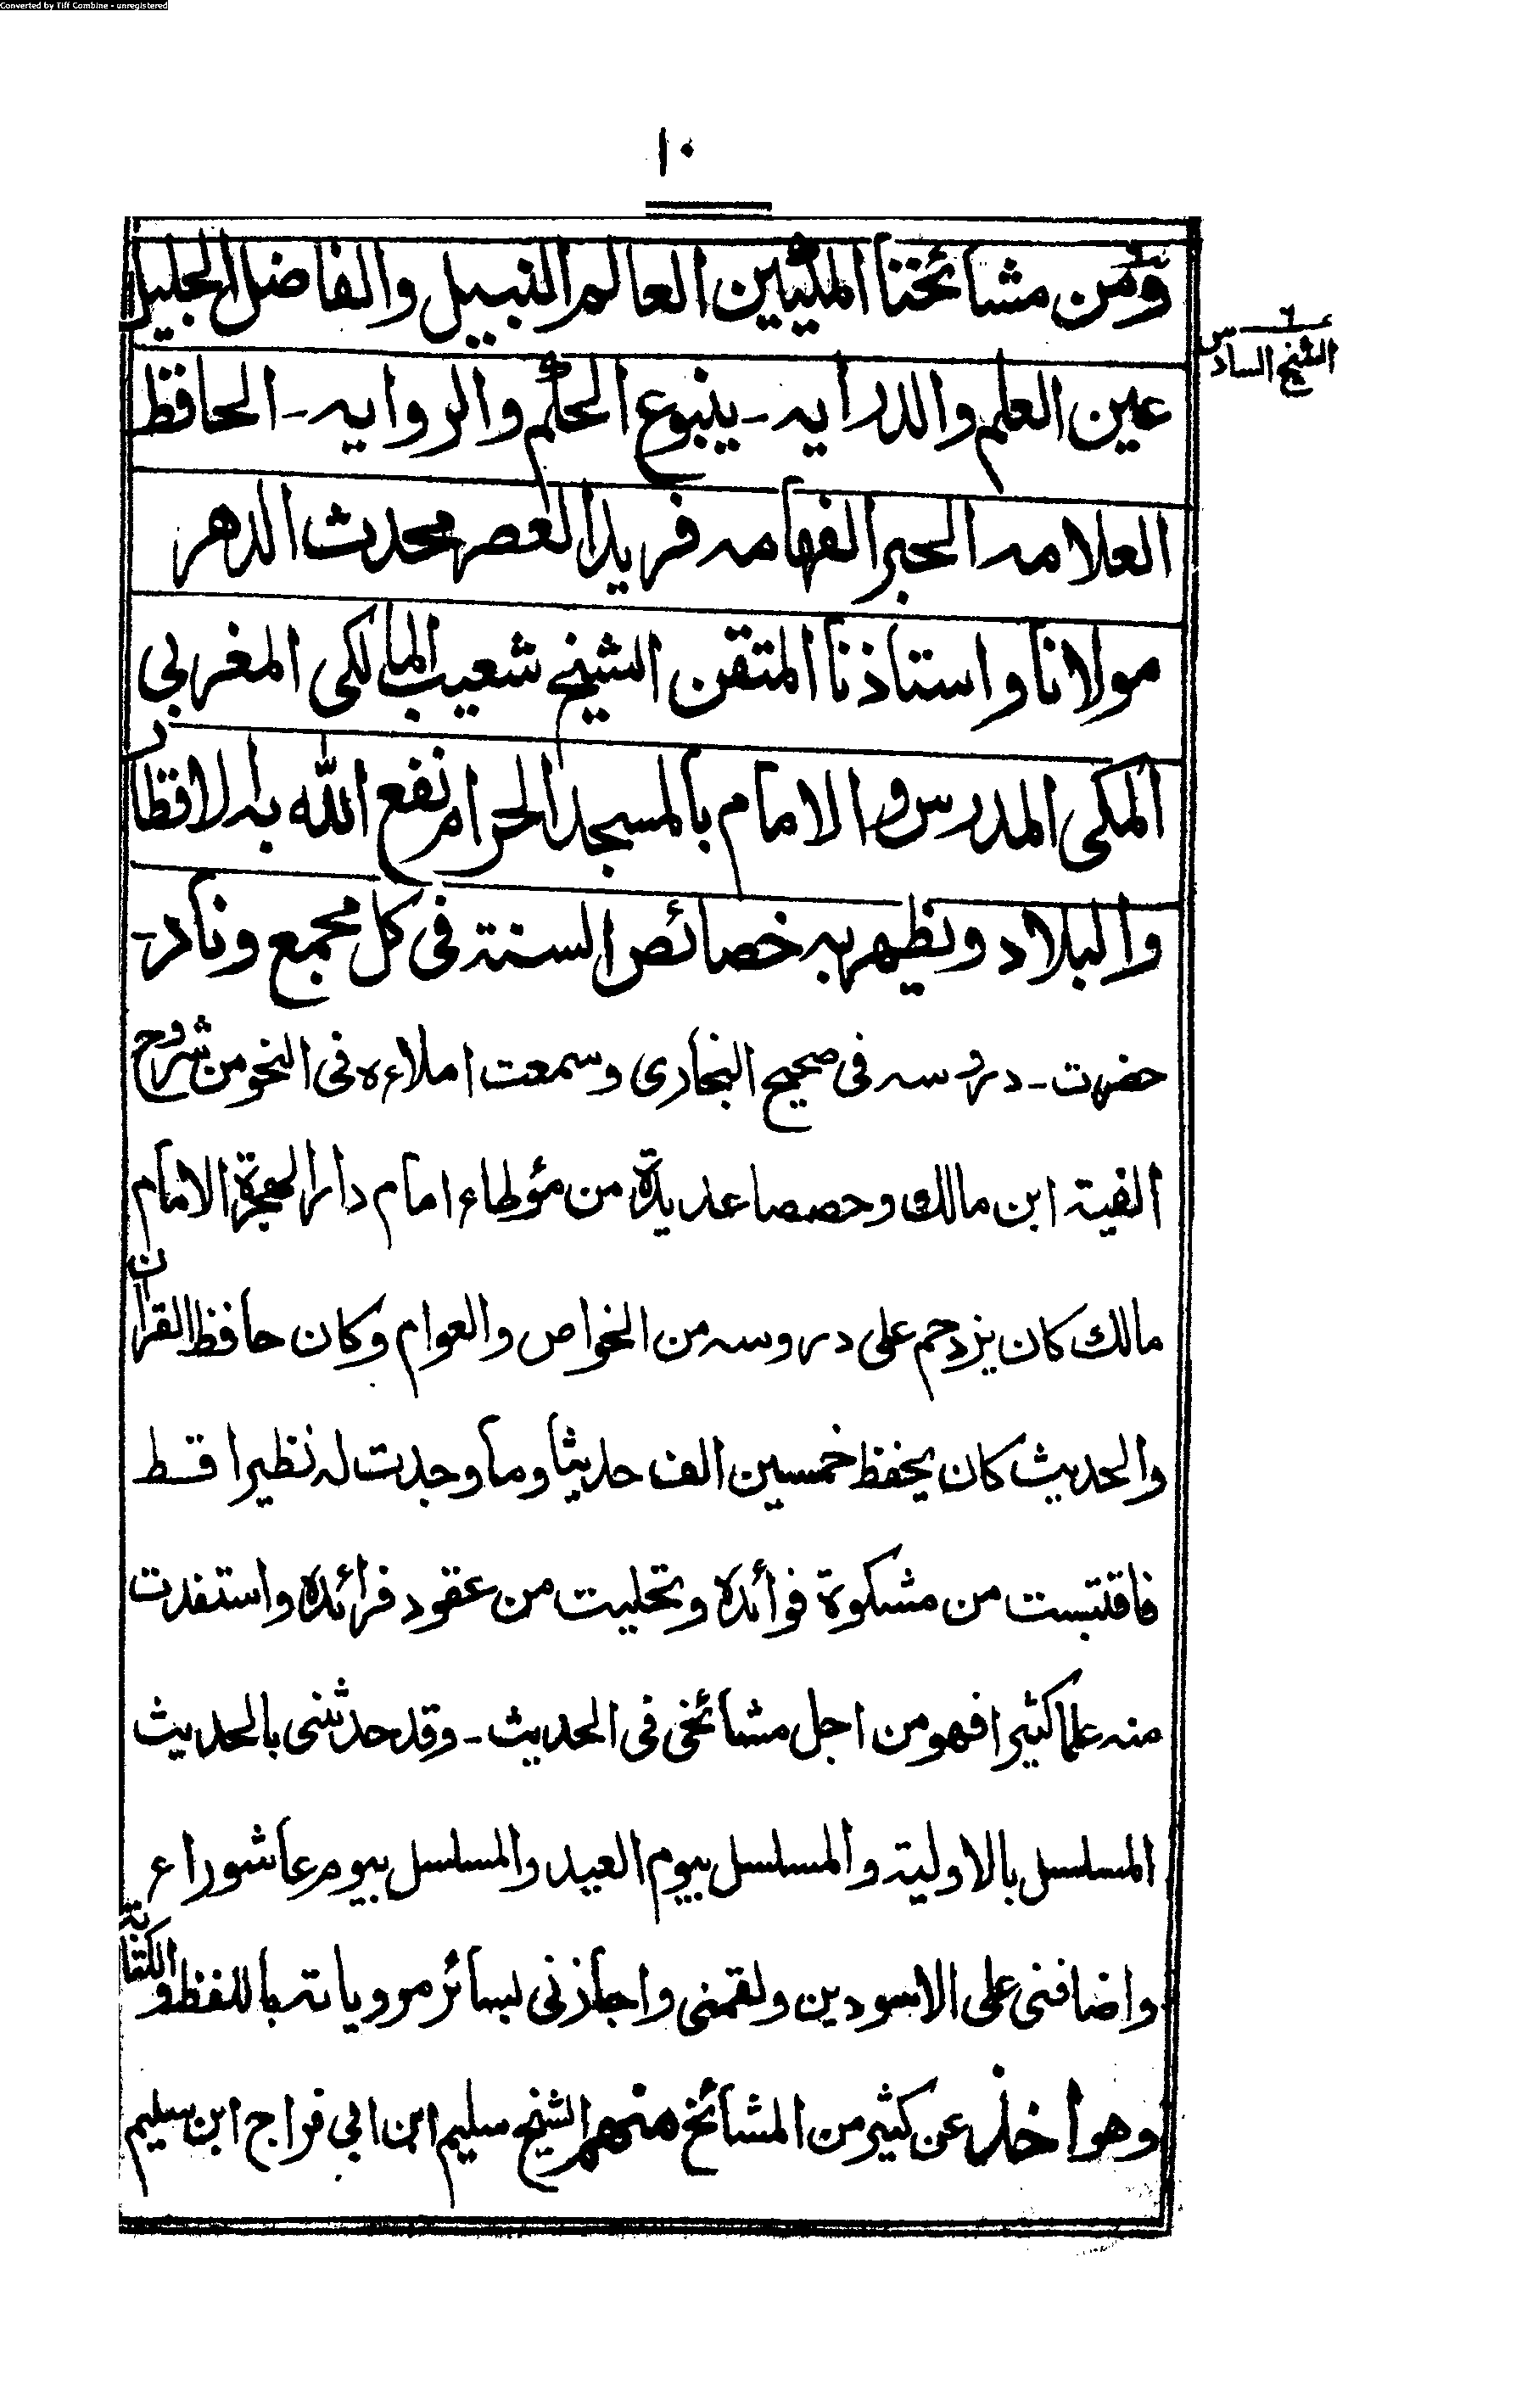 Converted by Tiff Combine - unregistered
١٠
ومن مشائخنا المکیین العالم النبیل والفاضل الجلیل
٦ الشیخ السادس
عین العلم والدرایه ـ ینبوع الحلم والروایه ـ الحافظ
العلامه الحبر الفهامه فرید العصر محدث الدهر
مولانا واستاذنا المتقن الشیخ شعیب المالکی المغربی
المکی المدرس والامام بالمسجد الحرام نفع الله به الاقطار
والبلاد ونظهر به خصائص السنة فی کل مجمع وناد ـ
حضرت ـ دروسه فی صحیح البخاری وسمعت املاءه فی النحو من شروح
الفیة ابن مالک وحصصا عدیدة من مؤطاء امام دار الهجرة الامام
مالک کان یزدحم علی دروسه من الخواص والعوام وکان حافظ القران
والحدیث کان یحفظ خمسین الف حدیثا وما وجدت له نظیرا قط
فاقتبست من مشکوة فوائده وتحلیت من عقود فرائده واستفدت
منه علما کثیرا فهو من اجل مشائخی فی الحدیث ـ وقد حدثنی بالحدیث
المسلسل بالاولیة والمسلسل بیوم العید والمسلسل بیوم عاشوراء
واضافنی علی الاسودین ولقمنی واجازنی بسائر مرویاته باللفظ والکتابة
وهو اخذ عن کثیر من المشائخ منهم الشیخ سلیم ابن ابی فراج ابن سلیم